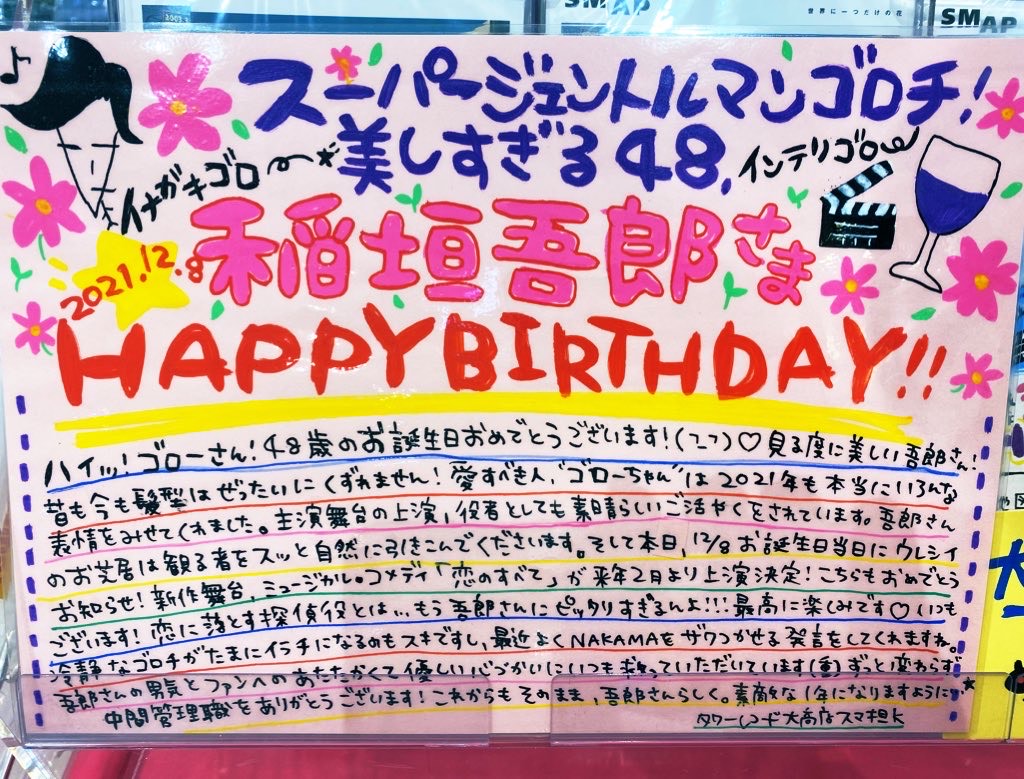 SMAP
世界に一つだけの花
SMAP
スーパージェントルマンゴロチ!
美しすぎる48,
イナガキゴロ
インテリゴロ
稲垣吾郎さま
2021.12.8
HAPPY BIRTHDAY!!
ハイッ!ゴローさん!48歳のお誕生日おめでとうございます!(ーーフ)♡見る度に美しい吾郎さん!
昔も今も髪型はぜったいにくずれません!愛すべき人、"ゴローちゃん"は2021年も本当にいろんな
表情をみせてくれました。主演舞台の上演、役者としても素晴らしいご活やくをされています。吾郎さん
のお芝居は観る者をスッと自然に引きこんでくださいます。そして本日、12/8お誕生日当日にウレシイ
お知らせ!新作舞台、ミュージカル。コメディ「恋のすべて」が来年2月より上演決定!こちらもおめでとう
ございます!恋に落とす探偵役とは、、もう吾郎さんにピッタリすぎるんよ!!!最高に楽しみです♡いつも
冷静なゴロチがたまにイラチになるのもスキですし、最近よくNAKAMAをザワつかせる発言をしてくれますね。
吾郎さんの男気とファンへのあたたかくて優しい心づかいにいつも救っていただいています(重)ずっと変わらず
中間管理職をありがとうございます!これからもそのまま、吾郎さんらしく。素敵な1年になりますように★
タワーレコード大高店スマ担K